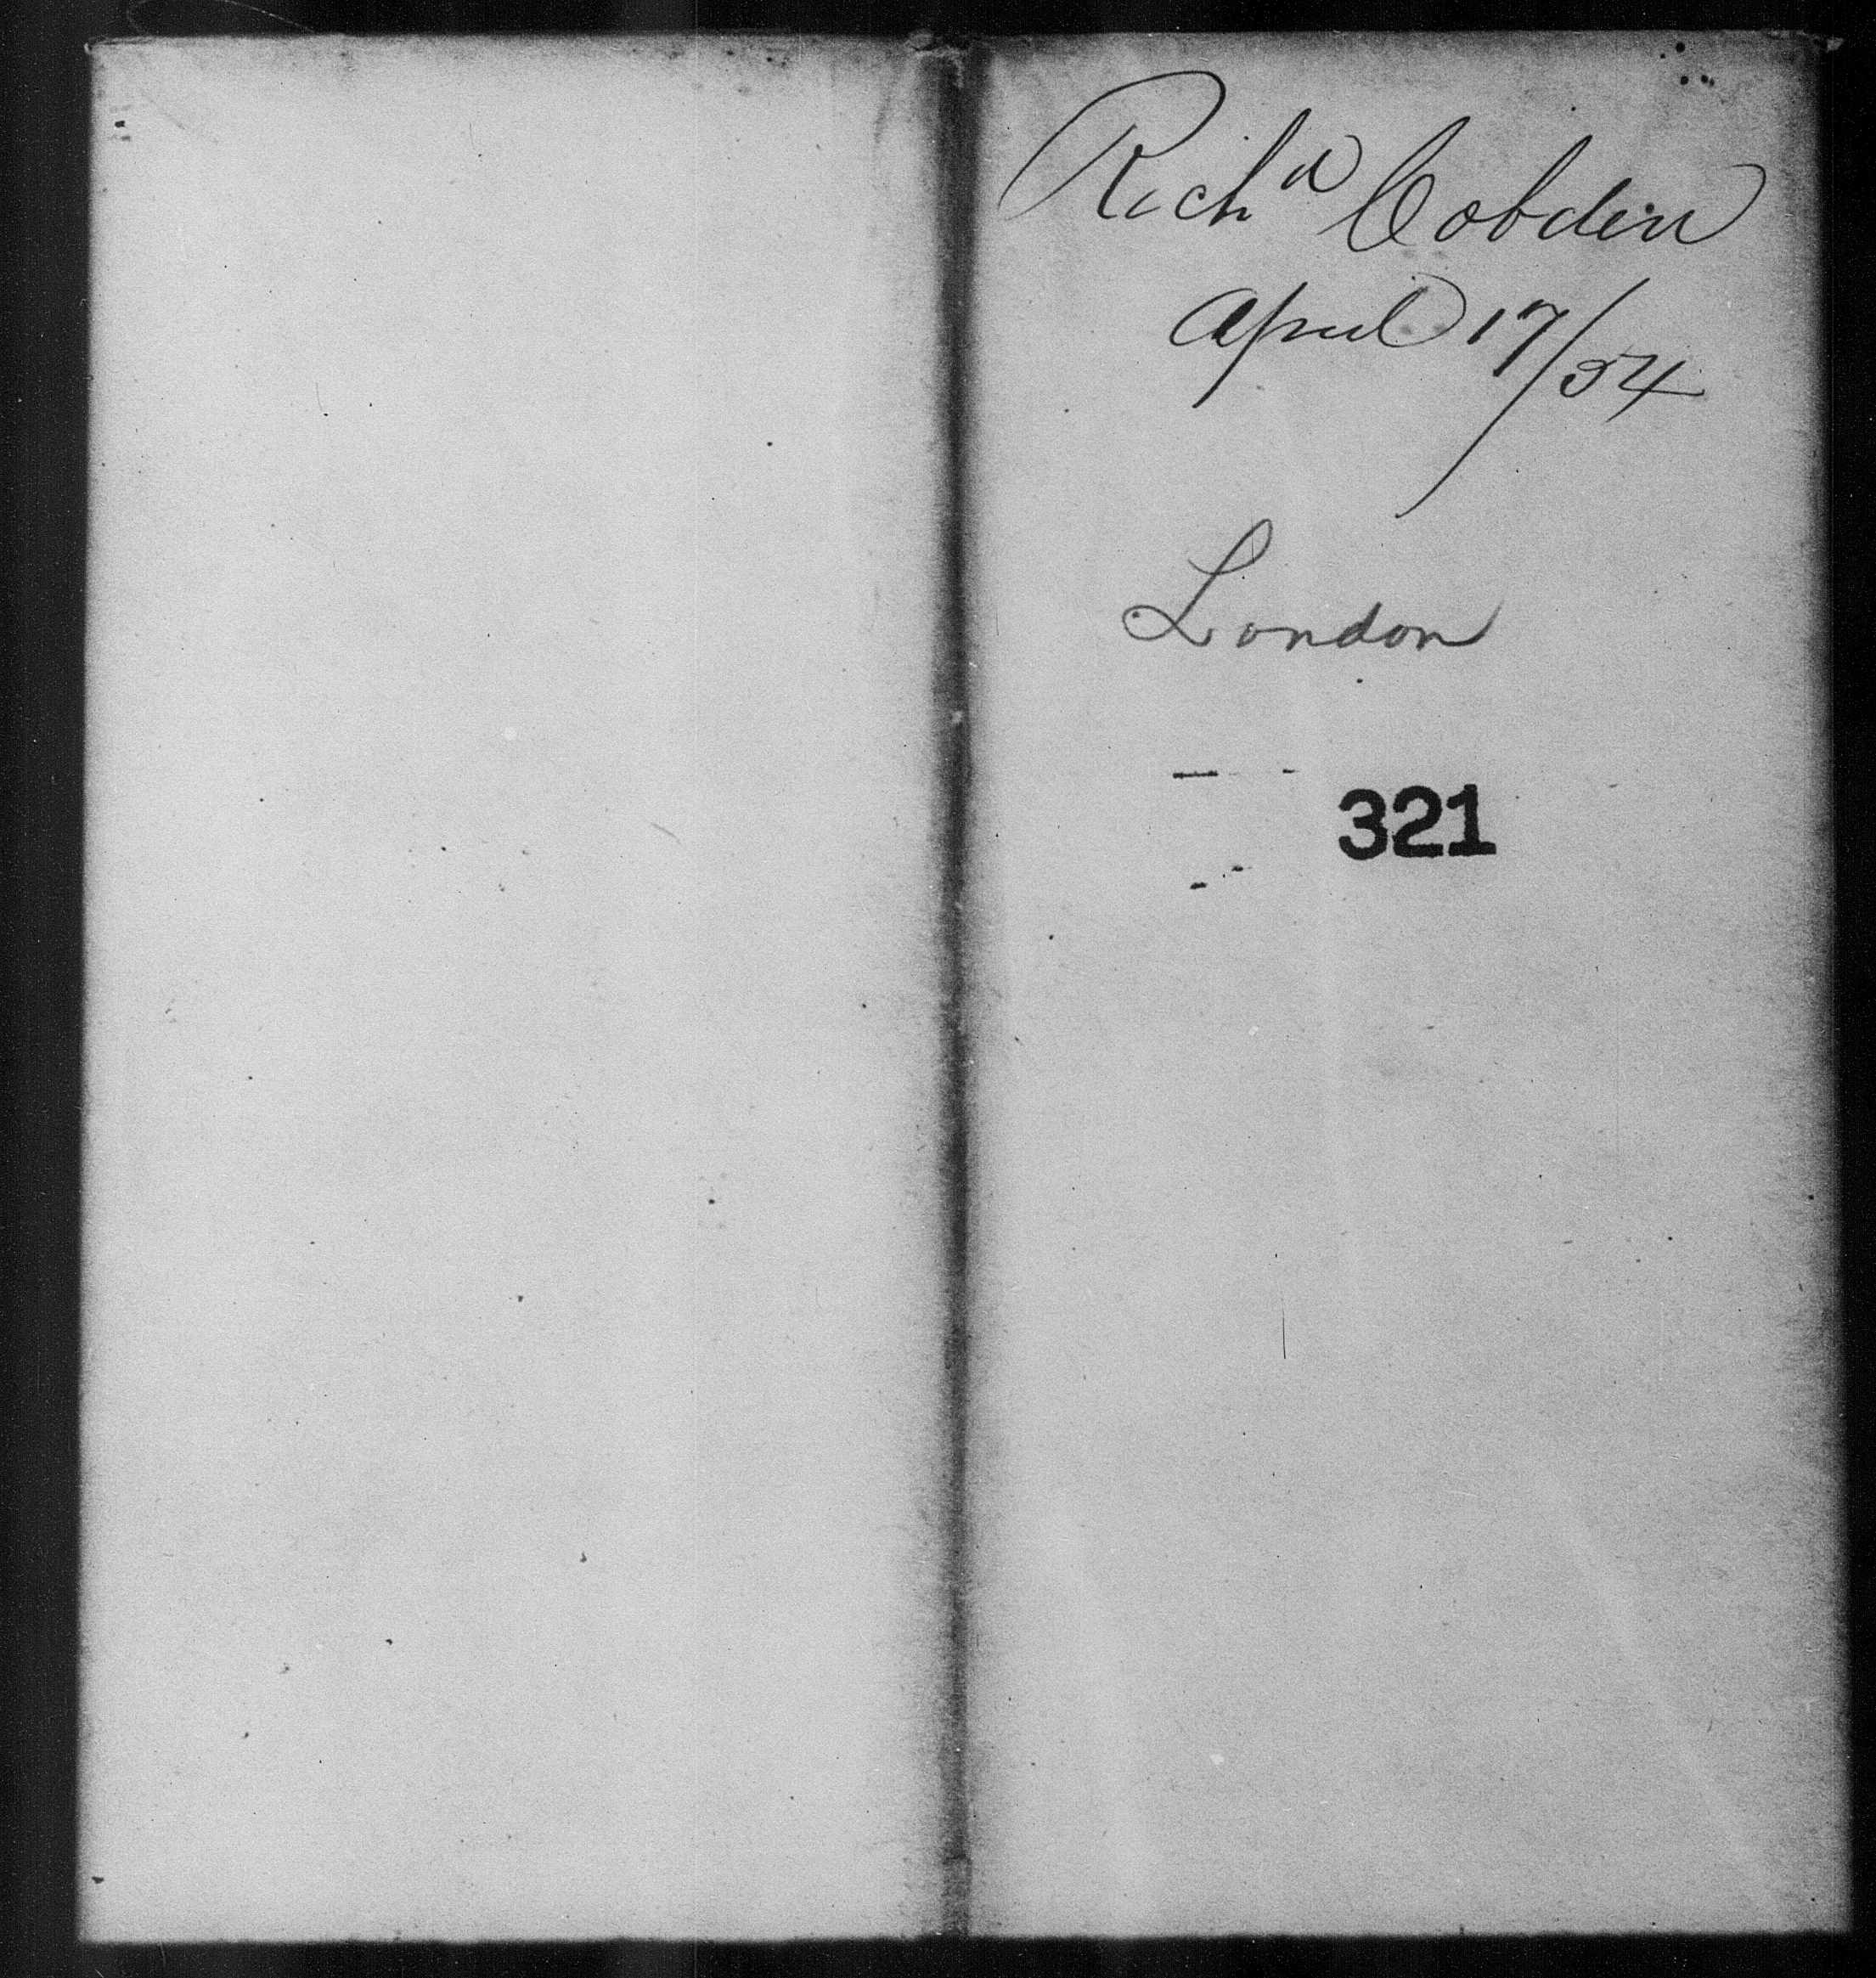 Richd Cobden
April 17/54
London
321